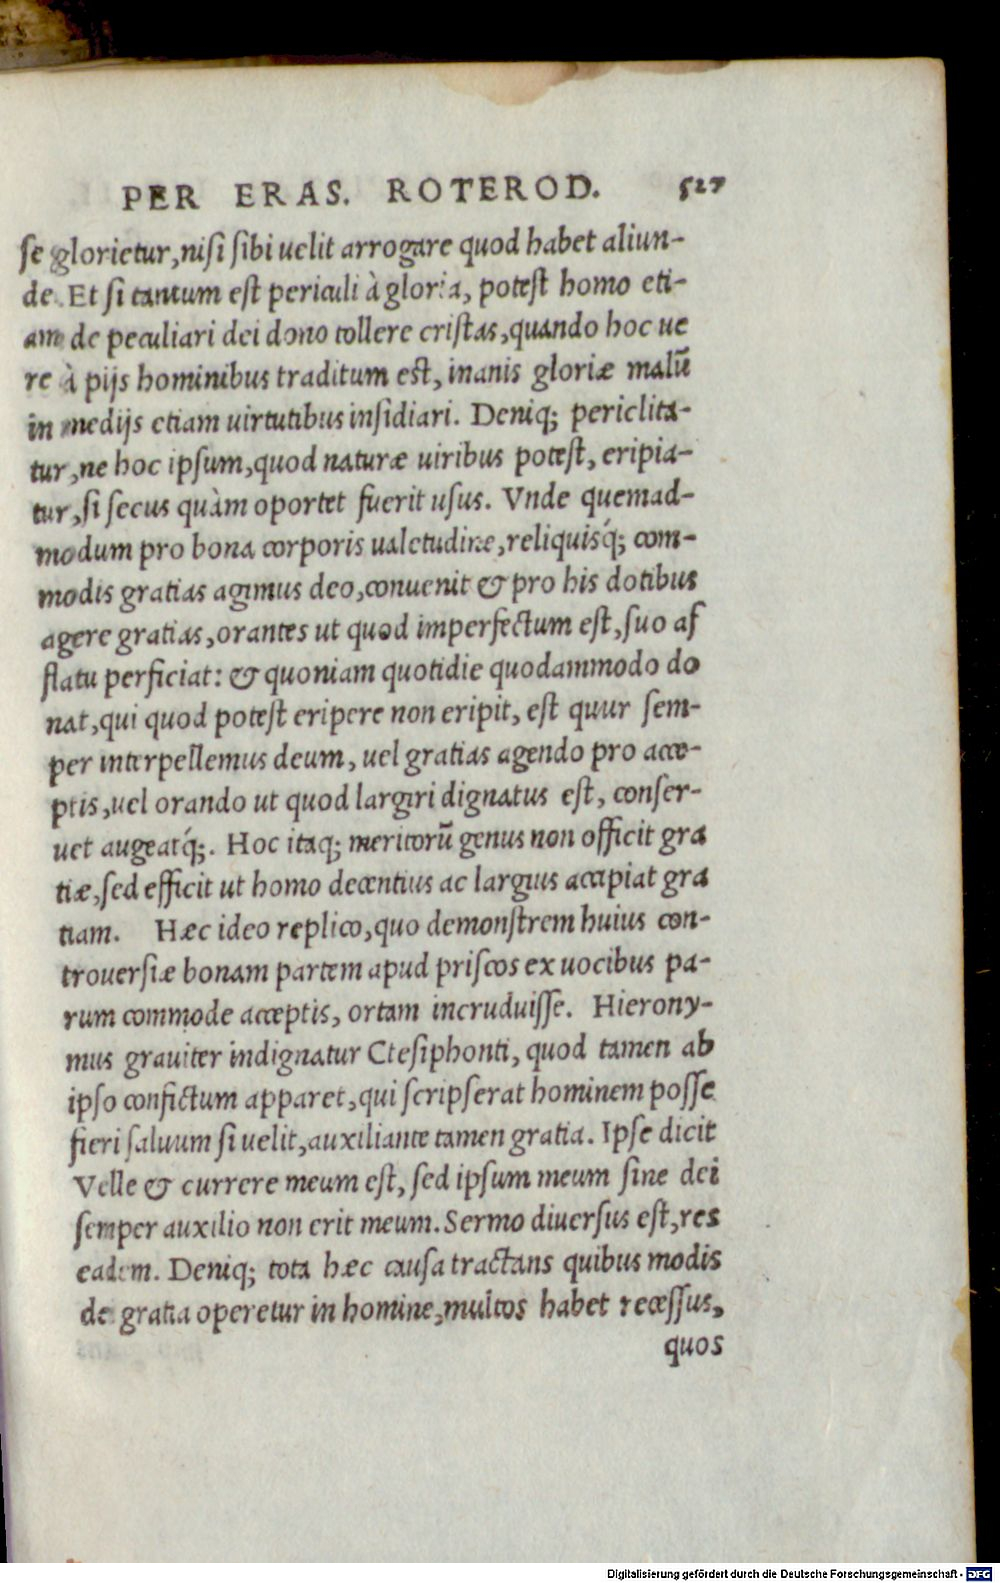 PER ERAS. ROTEROD. 527
se glorietur, nisi sibi uelit arrogare quod habet aliun-
de. Et si tantum est periculi à gloria, potest homo eti-
am de peculiari dei dono tollere cristas, quando hoc ue
re à pijs hominibus traditum est, inanis gloriæ malū
in medijs etiam uirtutibus insidiari. Deniq; periclita-
tur, ne hoc ipsum, quod naturæ uiribus potest, eripia-
tur, si secus quàm oportet fuerit usus. Vnde quemad-
modum pro bona corporis ualetudine, reliquisq́; com-
modis gratias agimus deo, conuenit & pro his dotibus
agere gratias, orantes ut quod imperfectum est, suo af
flatu perficiat: & quoniam quotidie quodammodo do
nat, qui quod potest eripere non eripit, est quur sem-
per interpellemus deum, uel gratias agendo pro acce-
ptis, uel orando ut quod largiri dignatus est, conser-
uet augeatq́;. Hoc itaq; meritorū genus non officit gra
tiæ, sed efficit ut homo decentius ac largius accipiat gra
tiam. Hæc ideo replico, quo demonstrem huius con-
trouersiæ bonam partem apud priscos ex uocibus pa-
rum commode acceptis, ortam incruduisse. Hierony-
mus grauiter indignatur Ctesiphonti, quod tamen ab
ipso confictum apparet, qui scripserat hominem posse
fieri saluum si uelit, auxiliante tamen gratia. Ipse dicit
Velle & currere meum est, sed ipsum meum sine dei
semper auxilio non erit meum. Sermo diuersus est, res
eadem. Deniq; tota hæc causa tractans quibus modis
dei gratia operetur in homine, multos habet recessus,
quos
Digitalisierung gefördert durch die Deutsche Forschungsgemeinschaft - DFG